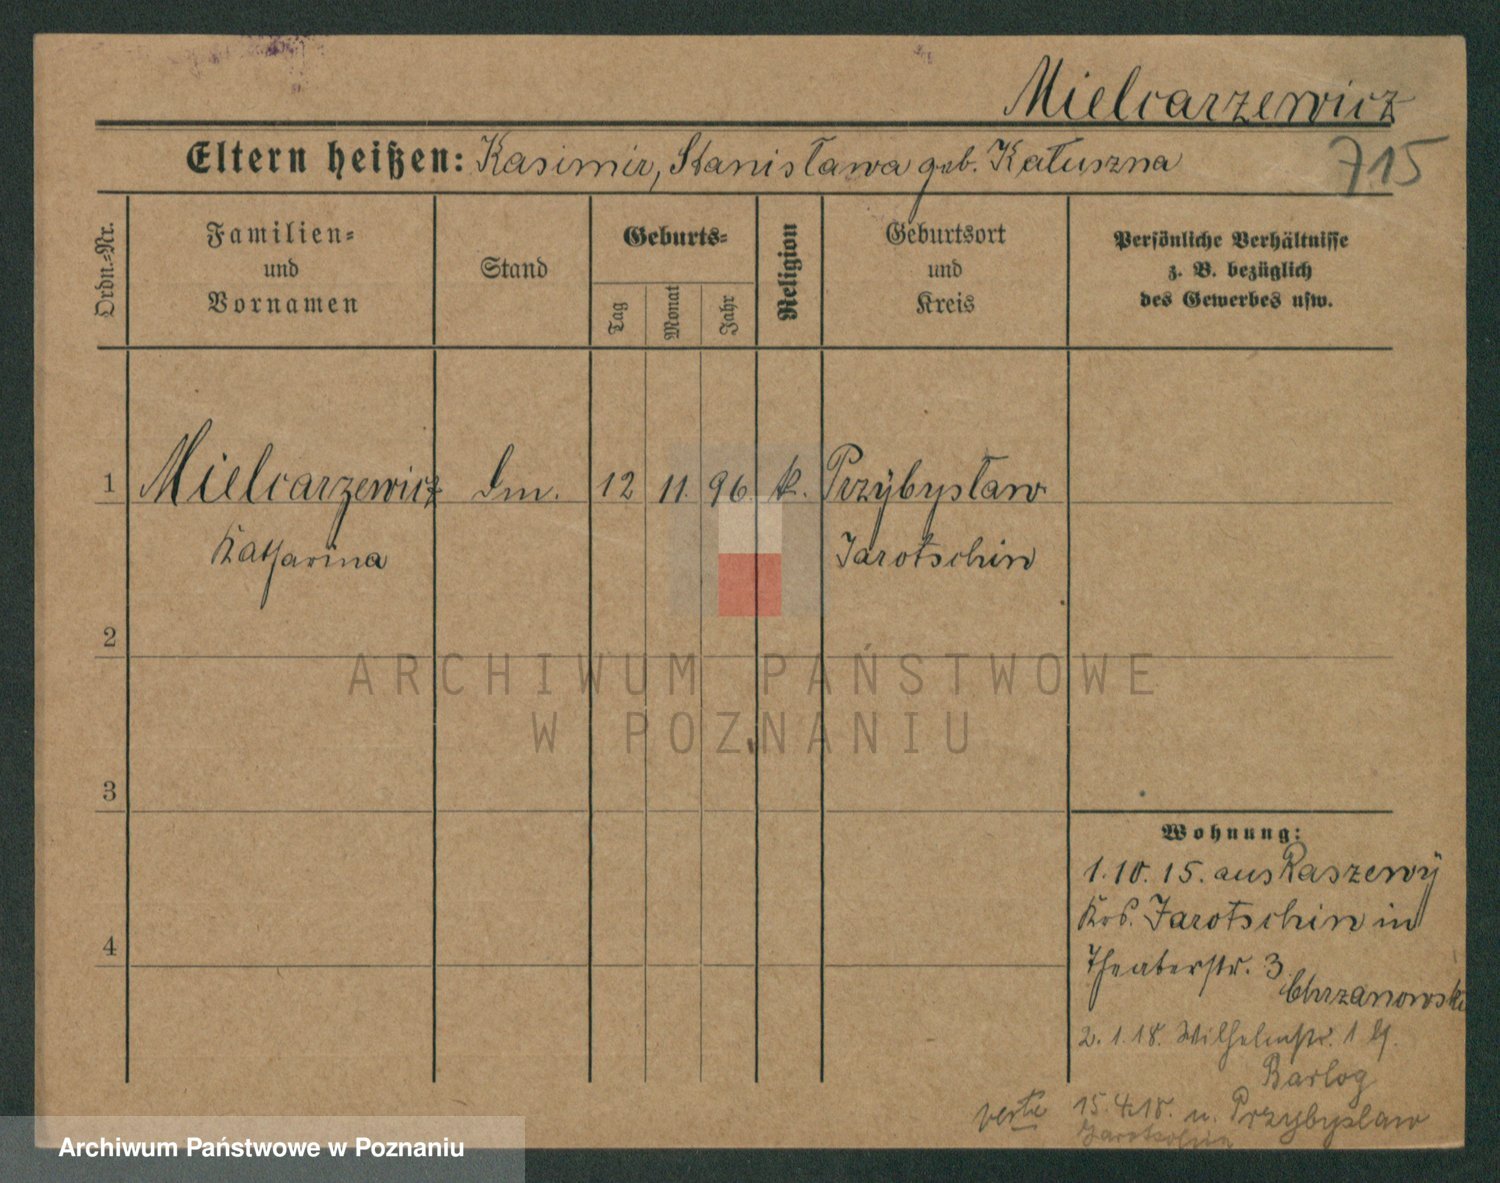 Mielcarzewicz
Eltern heißen: Kasimir, Stanisława geb. Kałuszna
715
Ordn.-Nr.
Familien-
und
Vornamen
Stand
Geburts-
Tag
Monat
Jahr
Religion
Geburtsort
und
Kreis
Persönliche Verhältnisse
z. B. bezüglich
des Gewerbes usw.
1 Mielcarzewicz 12 11. 96 k. Przybysław
Katharina Jarotschin
2
3
4
Wohnung:
1.10.15. aus Raszewy
Jarotschin in
Theaterstr. 3
Chrzanowski
2.1.18. Wilhelmstr. 1
Barlog
verte 15.4.18. n. Przybyslaw
Jarotschin
ARCHIWUM PAŃSTWOWE
W POZNANIU
Archiwum Państwowe w Poznaniu